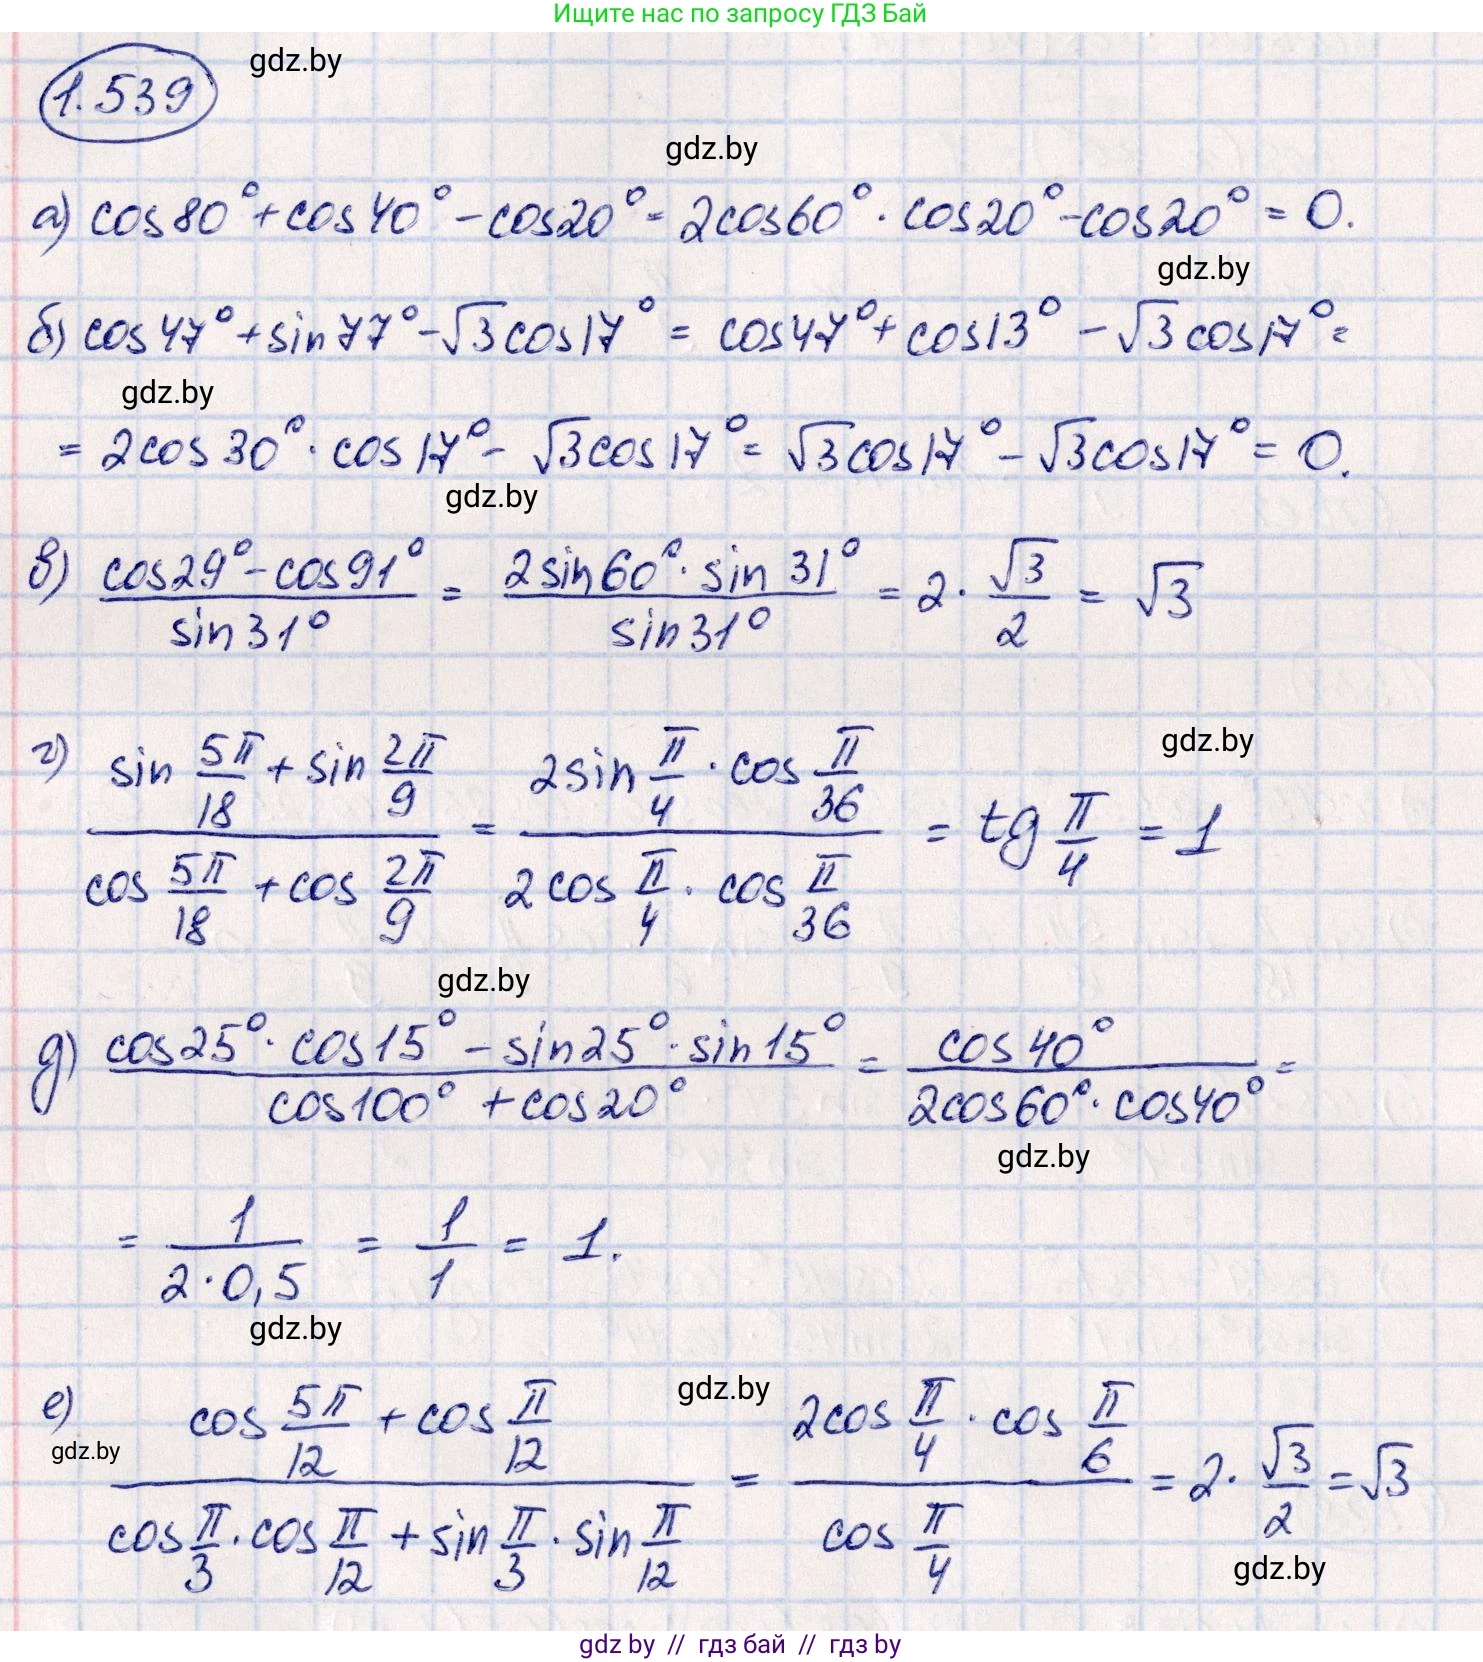 Ищите нас по запросу ГДЗ Бай
1.539
gdz.by
gdz.by
а) cos80° + cos40° - cos20° = 2cos60° · cos20° - cos20° = 0.
gdz.by
б) cos47° + sin77° - √3cos17° = cos47° + cos13° - √3cos17° =
gdz.by
= 2cos30° · cos17° - √3cos17° = √3cos17° - √3cos17° = 0.
gdz.by
в) (cos29° - cos91°)/(sin31°) = (2sin60° · sin31°)/(sin31°) = 2 · √3/2 = √3
gdz.by
г) (sin 5π/18 + sin 2π/9)/(cos 5π/18 + cos 2π/9) = (2sin π/4 · cos π/36)/(2cos π/4 · cos π/36) = tg π/4 = 1
gdz.by
д) (cos25° · cos15° - sin25° · sin15°)/(cos100° + cos20°) = (cos40°)/(2cos60° · cos40°) =
gdz.by
= 1/(2·0,5) = 1/1 = 1.
gdz.by
gdz.by
е) (cos 5π/12 + cos π/12)/(cos π/3 · cos π/12 + sin π/3 · sin π/12) = (2cos π/4 · cos π/6)/(cos π/4) = 2 · √3/2 = √3
gdz.by
gdz.by
gdz by // гдз бай // гдз by